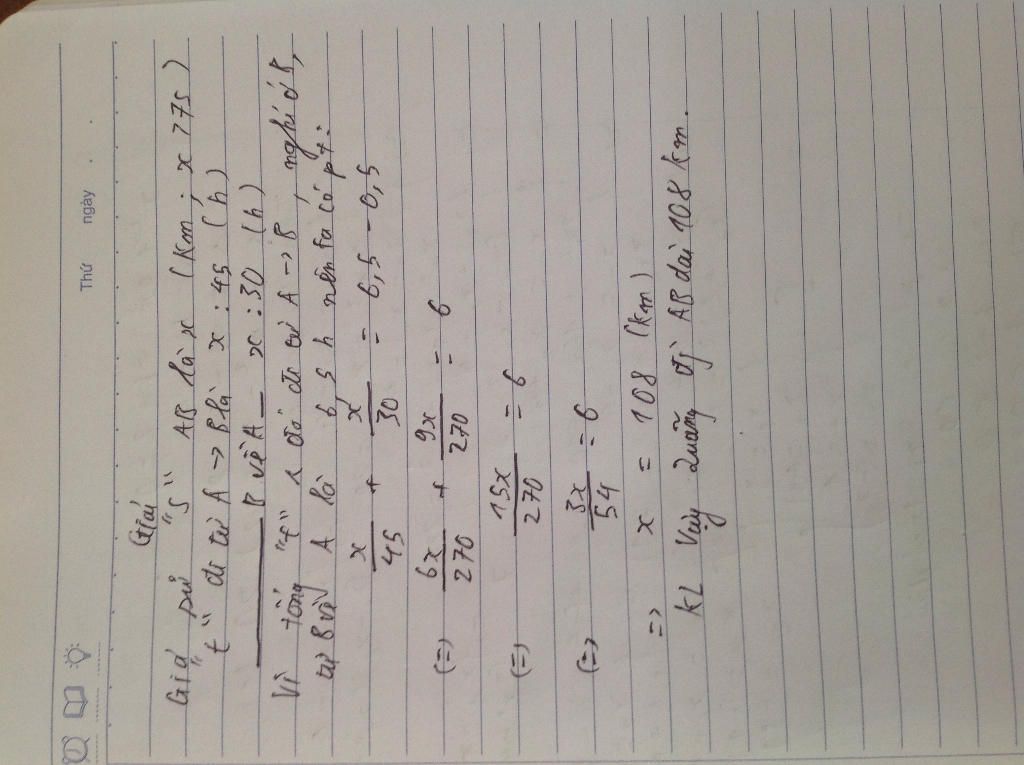 Thứ ngày
Giải
Giả sử "S" AB là x (km ; x > 75)
"t" đi từ A -> B là x : 45 (h)
B về A _ x : 30 (h)
Vì tổng "t" đi từ A -> B, nghỉ ở B,
từ B về A là 6,5 h nên ta có pt:
x/45 + x/30 = 6,5 - 0,5
(=) 6x/270 + 9x/270 = 6
(=) 15x/270 = 6
(=) 3x/54 = 6
=> x = 108 (km)
KL Vậy quãng đg AB dài 108 km.